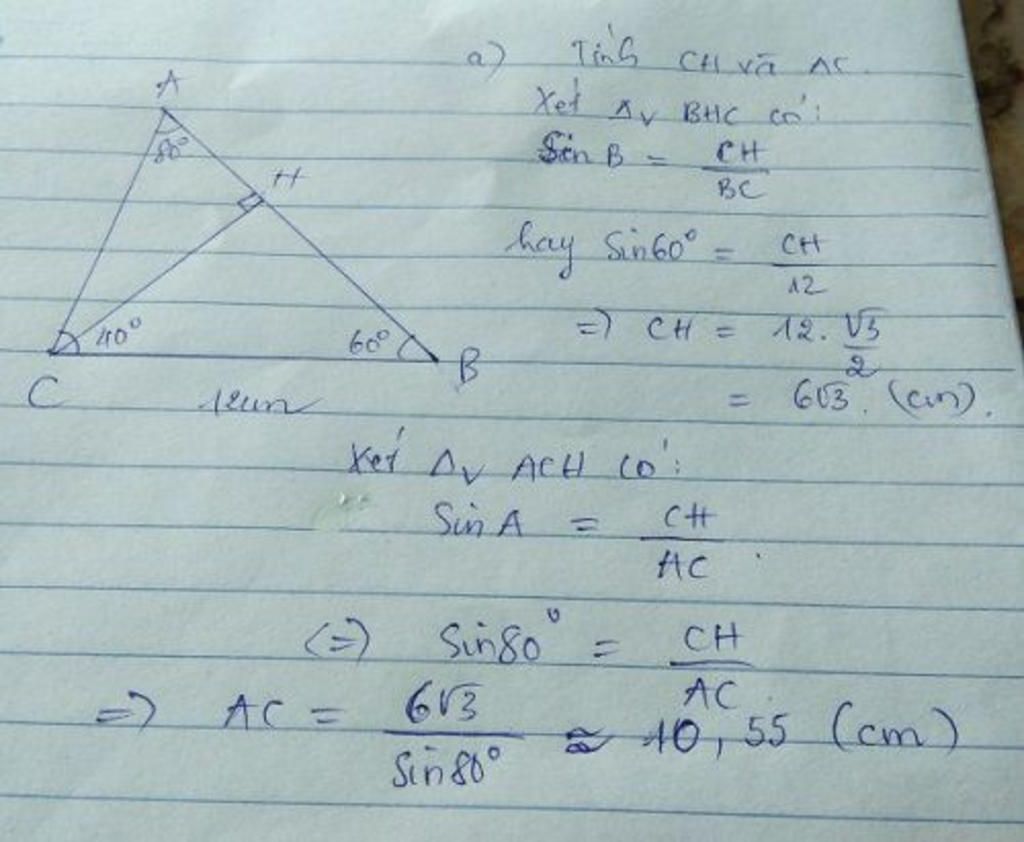 A
80°
H
40°
60°
C
B
12cm
a) Tính CH và AC.
Xét Δv BHC có:
Sin B = CH/BC
hay Sin60° = CH/12
=> CH = 12. √3/2
= 6√3. (cm).
Xét Δv ACH có:
Sin A = CH/AC.
<=> Sin80° = CH/AC.
=> AC = 6√3/Sin80° ≈ 10,55 (cm)